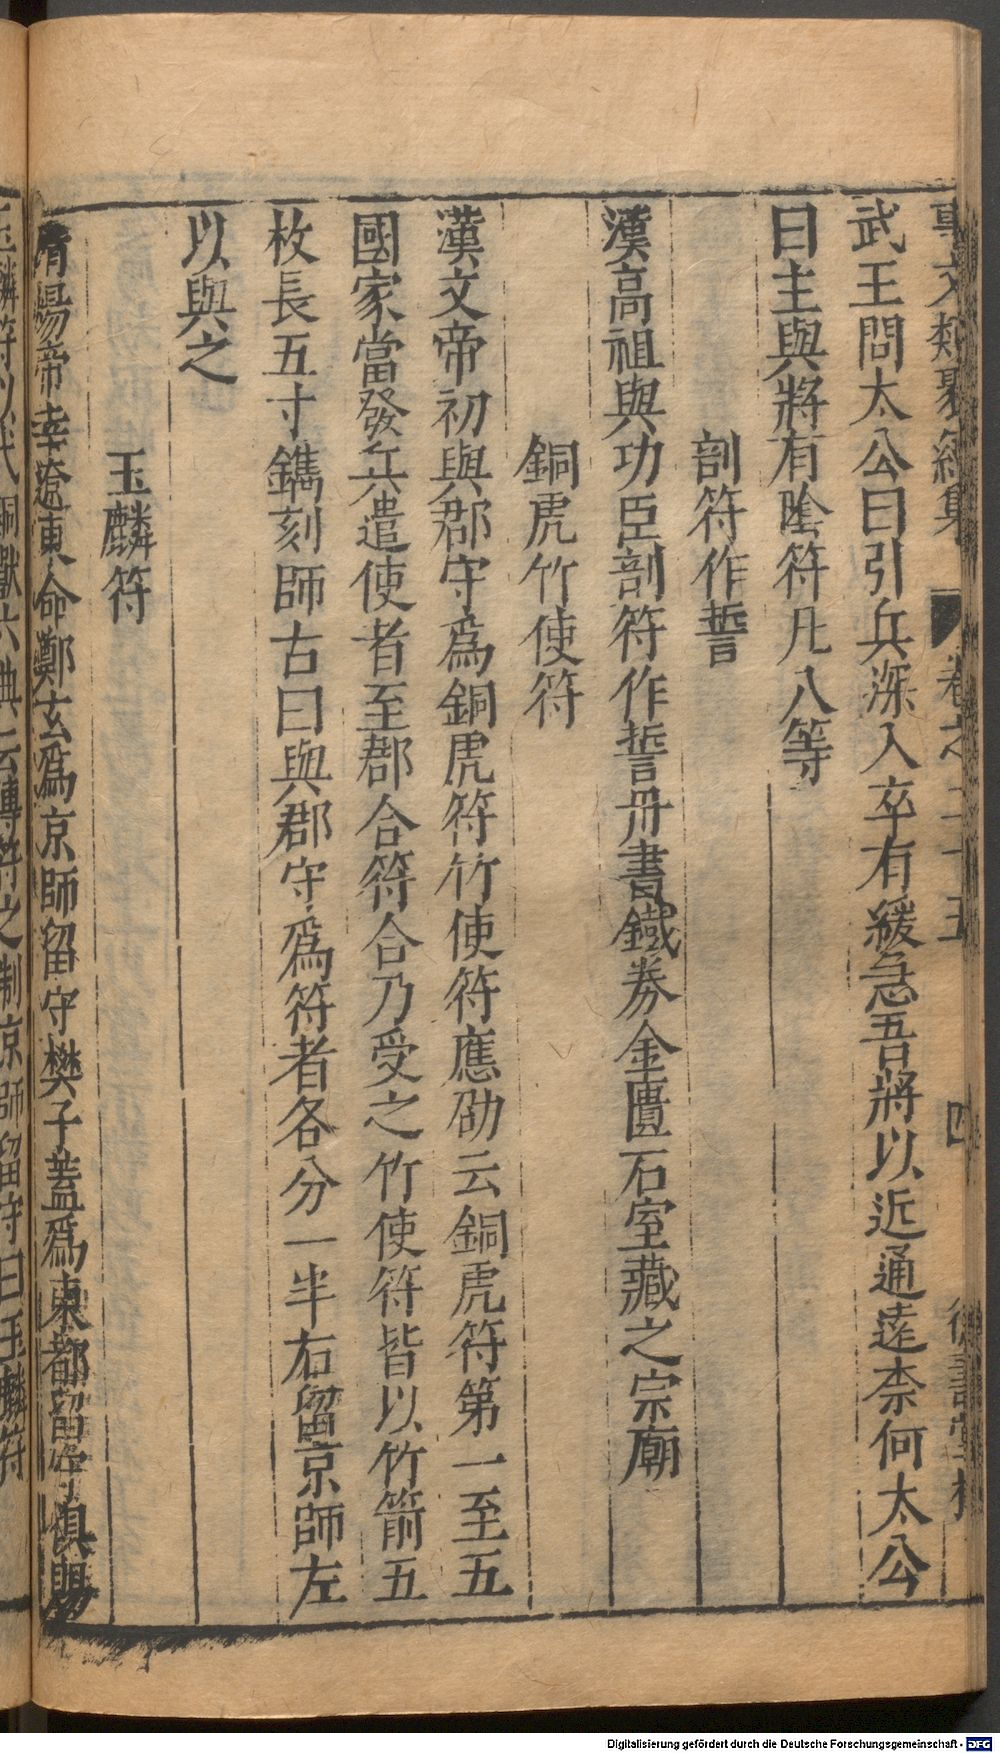 事文類聚續集 卷之二十五 四 德壽堂梓
武王問太公曰引兵深入卒有緩急吾將以近通遠柰何太公
曰主與將有隂符凡八等
剖符作誓
漢高祖與功臣剖符作誓丹書鐵券金匱石室藏之宗廟
銅虎竹使符
漢文帝初與郡守爲銅虎符竹使符應劭云銅虎符第一至五
國家當發兵遣使者至郡合符合乃受之竹使符皆以竹箭五
枚長五寸鐫刻師古曰與郡守爲符者各分一半右留京師左
以與之
玉麟符
隋煬帝幸遼東命鄭玄爲京師留守樊子蓋爲東都留守俱賜
玉麟符以代銅獸六典云傳符之制京師留守曰玉麟符
Digitalisierung gefördert durch die Deutsche Forschungsgemeinschaft - DFG